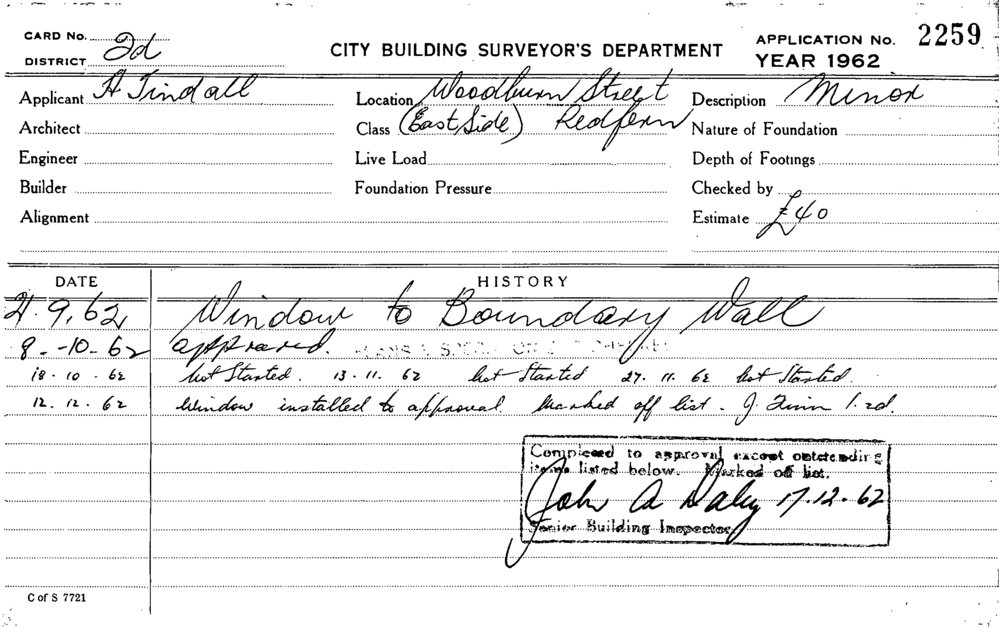 CARD No. 2d
DISTRICT
CITY BUILDING SURVEYOR'S DEPARTMENT
APPLICATION No. 2259
YEAR 1962
Applicant H Tindall
Location Woodburn Street
Description Minor
Architect
Class (East Side) Redfern
Nature of Foundation
Engineer
Live Load
Depth of Footings
Builder
Foundation Pressure
Checked by
Alignment
Estimate £40
DATE HISTORY
21.9.62 Window to Boundary Wall
8-10-62 approved.
18.10.62 Not Started. 13.11.62 Not Started 27.11.62 Not Started.
12.12.62 Window installed to approval. Marked off list. J.
Completed to approval except outstanding
items listed below. Marked off list.
John A Daley 17.12.62
Senior Building Inspector
C of S 7721